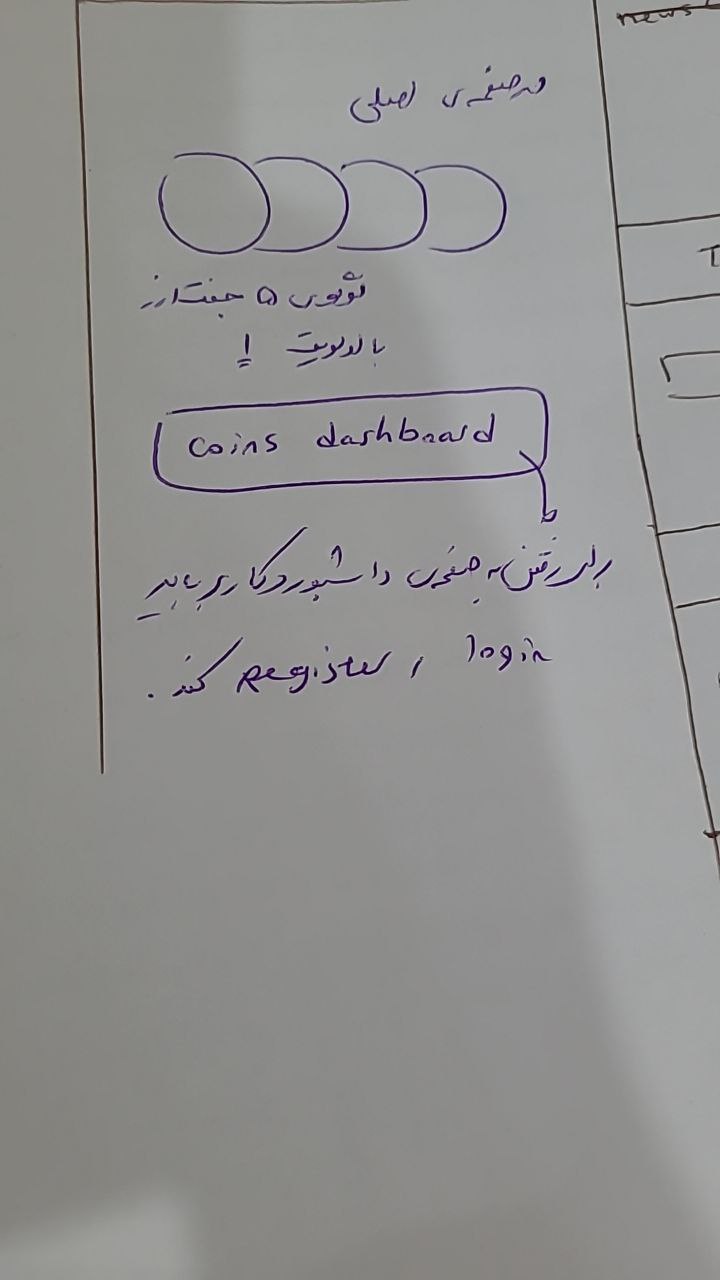 در صفحه‌ی اصلی
لوگوی ۵ جفت ارز
با اولویت ۱
coins dashboard
برای رفتن به صفحه‌ی داشبورد کاربر باید
login و Register کند.
news
T